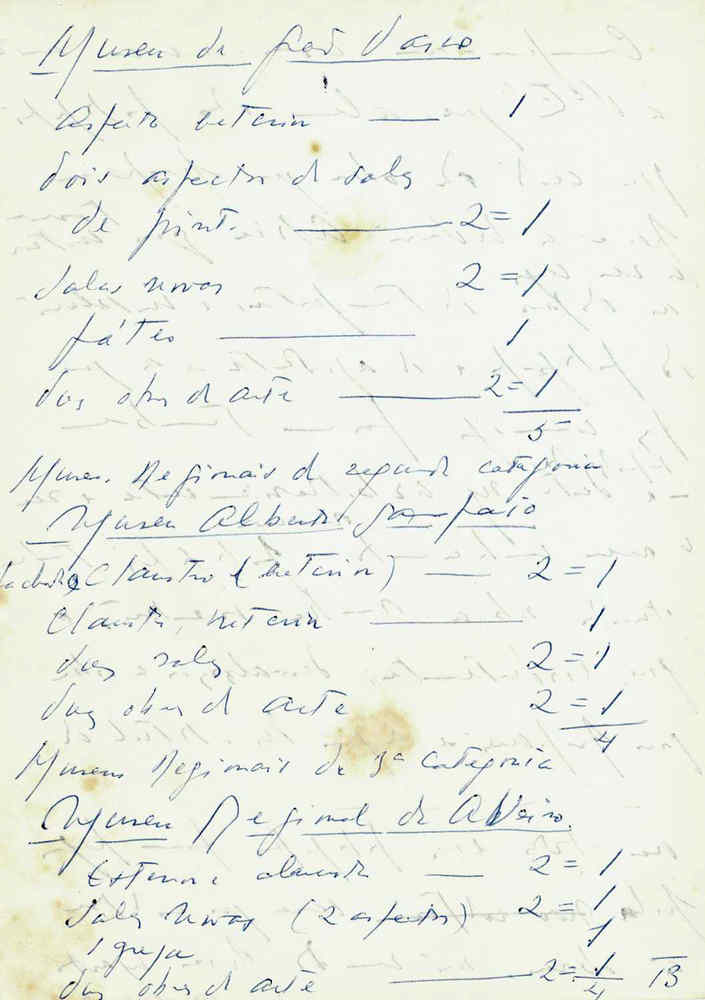 Museu de Grão Vasco
Aspecto exterior — 1
dois aspectos de salas
de pint. — 2 = 1
Salas novas 2 = 1
pátio — 1
duas obras de arte — 2 = 1
5
Museus Regionais de segunda categoria
Museu Alberto Sampaio
Claustro (exterior) — 2 = 1
Claustro, interior — 1
duas salas 2 = 1
duas obras de arte 2 = 1
4
Museus Regionais de 3ª categoria
Museu Regional de Aveiro.
Exterior e claustro — 2 = 1
Salas novas (2 aspectos) 2 = 1
Igreja 1
duas obras de arte — 2 = 1
4 13